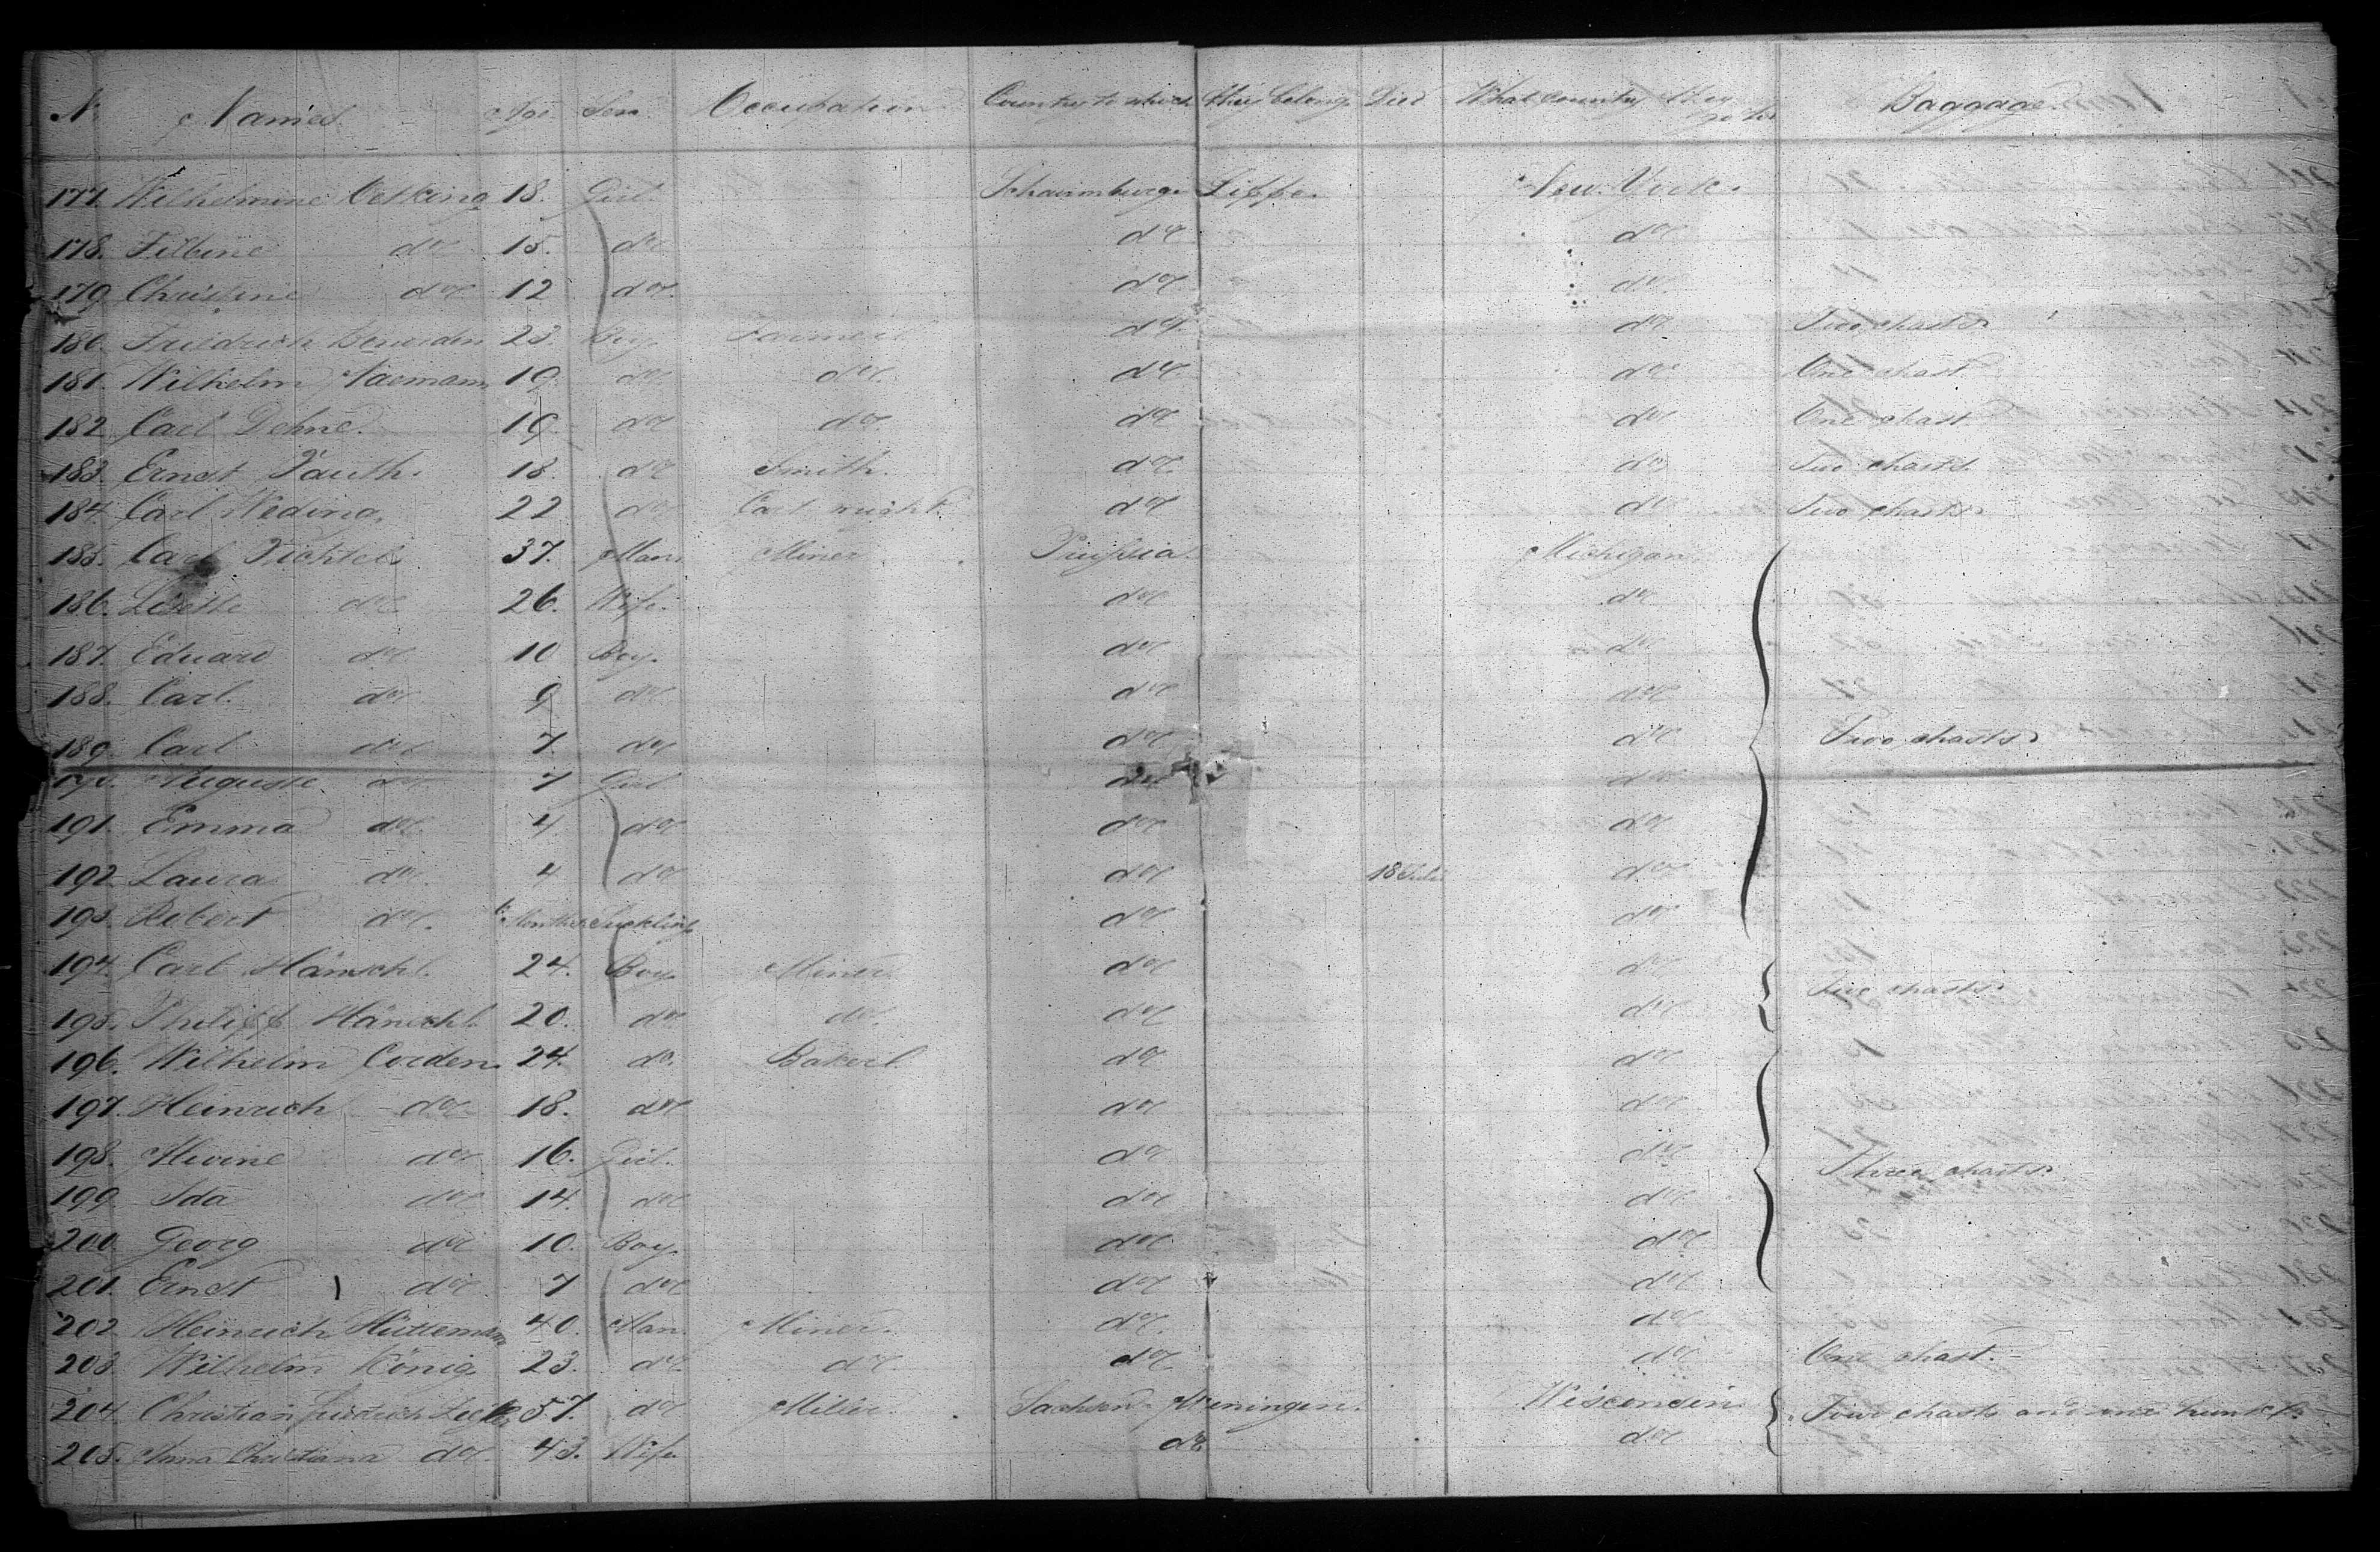 No Names Age Sex Occupation Country to which they belong Died What country they go to Baggage
177. Wilhelmine Oetking 18. Girl. Schaumburg Lippe. New-York.
178. Filbine do 15. do do do
179. Christine do 12 do do do
180. Friedrich 23. Boy. Farmer do do Two chasts
181. Wilhelm 19. do do do do One chast.
182. Carl Dehne. 19. do do do do One chast
183. Ernst Pauth. 18. do Smith. do do Two chasts
184. Carl Weding. 22 do do do Two chasts
185. Carl 37. Man Miner Prussia. Michigan
186. Lisette do 26. Wife. do do
187. Eduard do 10 Boy. do do
188. Carl. do 9 do do do
189. Carl do 7. do do do Two chasts
190. Auguste do 7 Girl do do
191. Emma do 4 do do do
192. Laura do 4 do do 18 Juli do
193. Robert do Months Suckling do do
194. Carl Hänschl. 24. Boy. Miner do do Two chasts
195. Philipp Hänschl. 20. do do. do do
196. Wilhelm Corden. 24. do. Baker. do do
197. Heinrich do 18. do do do
198. Alwine do 16. Girl. do do Three chasts
199. Ida do 14. do do do
200. Georg do 10. Boy. do do
201. Ernst do 7 do do do
202. Heinrich Hüttemann 40. Man. Miner. do. do
203. Wilhelm König. 23. do do do do One chast.
204. Christian Friedrich 57. do Miller. Sachsen Meiningen. Wisconsin Two chasts and one
205. Anna Christiana do 43. Wife do do